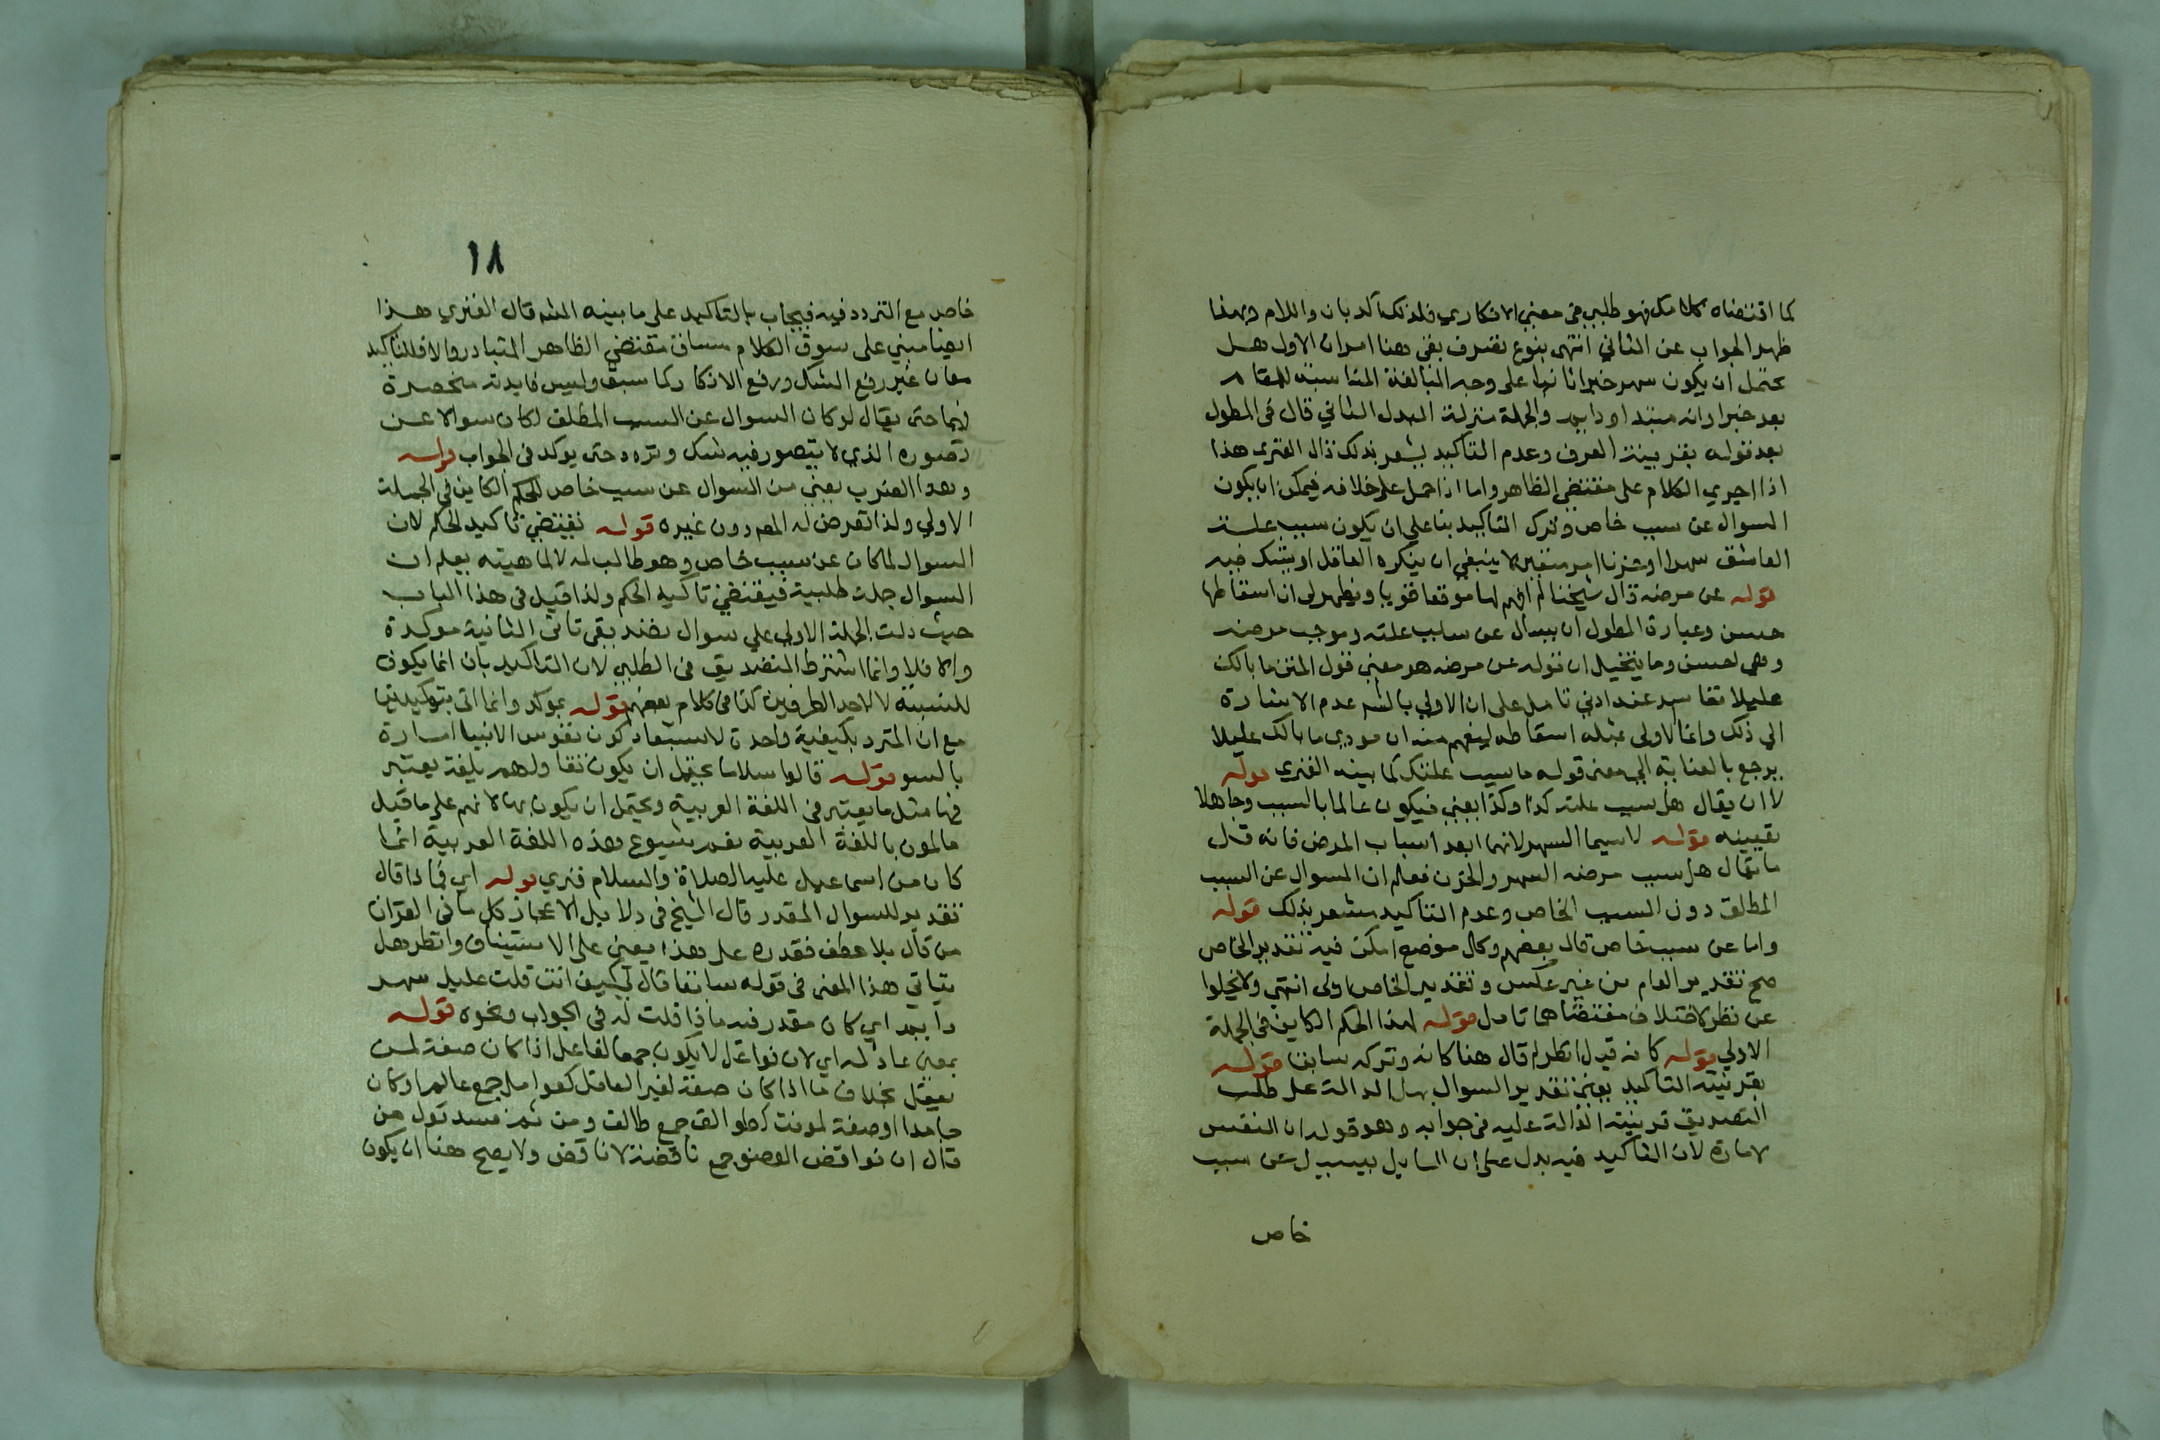 كما اقتضاه كلامك فهو طلبي في معنى الانكاري فلذلك اكد بان واللام وبهذا
ظهر الجواب عن الثاني انتهى بنوع تصرف بقي هنا امران الاول هل
يحتمل ان يكون سهر خبرا ثانيا على وجه المبالغة المناسبة للمقام
بعد خبر او انه مبتدا ودايم والجملة منزلة البدل الثاني قال في المطول
بعد قوله بقرينة العرف وعدم التاكيد يشعر بذلك قال الفنري هذا
اذا اجري الكلام على مقتضى الظاهر واما اذا حمل على خلافه فيمكن ان يكون
السوال عن سبب خاص وترك التاكيد بنا على ان يكون سبب علة
العاشق سهرا وحزنا امر متقين لا ينبغي ان ينكره العاقل او يشك فيه
قوله عن مرضه قال شيخنا لم افهم لها موقعا قويا ويظهر لي ان اسقاطها
حسن وعبارة المطول ان يسال عن سبب علته وموجب مرضه
وهي احسن وما يتخيل ان قوله عن مرضه هو معنى قول المتن ما بالك
عليلا تفاسد عند ادنى تامل على ان الاولى بالش عدم الاشارة
الى ذلك وانما الاولى بمثله اسقاطه ليفهم منه ان مودى ما بالك عليلا
يرجع بالعناية الى معنى قوله ما سبب علتك كما بينه الفنري قوله
لا ان يقال هل سبب علته كذا وكذا يعني فيكون عالما بالسبب وجاهلا
تعيينه قوله لا سيما السهر لانهما ابعد اسباب المرض فانه قل
ما يقال هل سبب مرضه السهر والحزن فعلم ان السوال عن السبب
المطلق دون السبب الخاص وعدم التاكيد مشعر بذلك قوله
واما عن سبب خاص قال بعضهم وكل موضع امكن فيه تقدير الخاص
صح تقدير العام من غير عكس وتقدير الخاص اولى انتهى ولا يخلوا
عن نظر لاختلاف مقتضاهما تامل قوله لهذا الحكم الكاين في الجملة
الاولى قوله كانه قيل انظر لم قال هنا كانه وتركه سابقا قوله
بقرنية التاكيد يعني تقدير السوال بهل الدالة على طلب
التصديق قرينته الدالة عليه في جوابه وهو قوله ان النفس
لامارة لان التاكيد فيه يدل على ان السايل يسيل عن سبب
خاص
١٨
خاص مع التردد فيه فيجاب بالتاكيد على ما بينه الش قال الفنري هذا
ايضا مبني على سوق الكلام مساق مقتضى الظاهر المتبادر والا فللتاكيد
معان غير رفع الشك ورفع الانكار كما سبق وليس فايدته منحصرة
فيهما حتى يقال لو كان السوال عن السبب المطلق لكان سوالا عن
تصوره الذي لا يتصور فيه شك وتردد حتى يوكد في الجواب قوله
وهذا الضرب يعني من السوال عن سبب خاص للحكم الكاين في الجملة
الاولى ولذا تعرض له المص دون غيره قوله تقتضي تاكيد الحكم لان
السوال لما كان عن سبب خاص وهو طالب له لا لماهيته يعلم ان
السوال جملة طلبية فيقتضي تاكيد الحكم ولذا قيل في هذا الباب
حيث دلت الجملة الاولى على سوال تصديقي تاتي الثانية موكدة
والا فلا وانما اشترط التصديق في الطلبي لان التاكيد بان انما يكون
للنسبة لا لاحد الطرفين كذا في كلام بعضهم قوله بموكد وانما اتى بتوكيدين
مع ان المتردد يكفيه واحدة لاستبعاد كون نفوس الانبيا امارة
بالسو قوله قالوا سلاما يحتمل ان يكون تقاولهم بلغة يعتبر
فيها مثل ما يعتبر في اللغة العربية ويحتمل ان يكون بها لانهم على ما قيل
عالمون باللغة العربية نعم شيوع هذه اللغة العربية انما
كان من اسماعيل عليه الصلاة والسلام فنري قوله اي فماذا قال
تقدير للسوال المقدر قال الشيخ في دلايل الاعجاز كل ما في القران
من قال بلا عطف فقدره على هذا يعني على الاستيناف وانظر هل
يتاتي هذا المعنى في قوله سابقا قال لي كيف انت قلت عليل سهر
دايم اي كان مقدر فيه ماذا قلت له في الجواب ونحوه قوله
بمعنى عاذله اي لان فواعل لا يكون جمعا لفاعل اذا كان صفة لمن
يعقل بخلاف ما اذا كان صفة لغير العاقل كعوامل جمع عالم او كان
جامدا او صفة لمونث كطوالق جمع طالق ومن ثم فسد قول من
قال ان نواقض الوضو جمع ناقضة لا ناقض ولا يصح هنا ان يكون